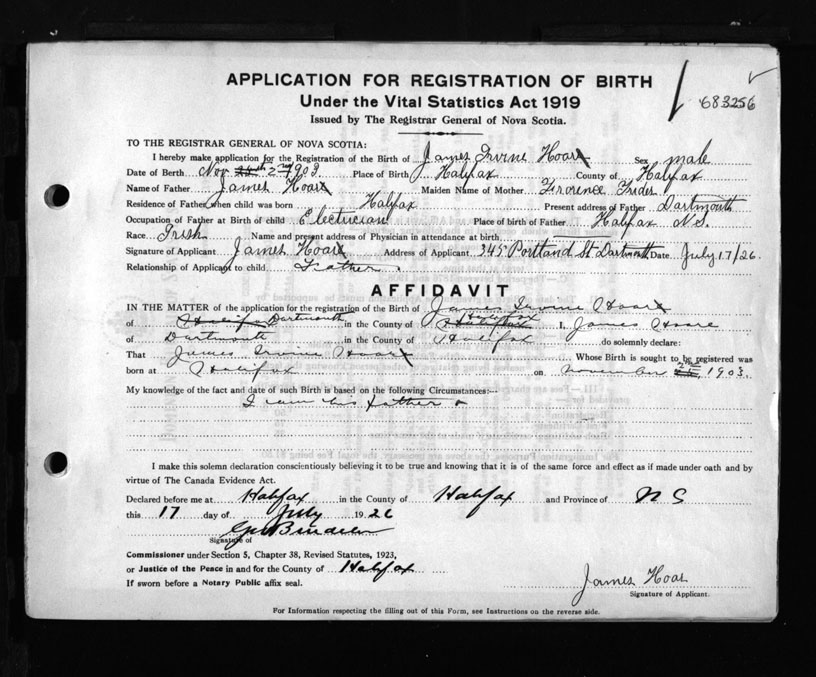 APPLICATION FOR REGISTRATION OF BIRTH
683256
Under the Vital Statistics Act 1919
Issued by The Registrar General of Nova Scotia.
TO THE REGISTRAR GENERAL OF NOVA SCOTIA:
I hereby make application for the Registration of the Birth of James Irvine Hoar Sex male
Date of Birth Nov 2nd 1903 Place of Birth Halifax County of Halifax
Name of Father James Hoar Maiden Name of Mother Florence
Residence of Father when child was born Halifax Present address of Father Dartmouth
Occupation of Father at Birth of child Electrician Place of birth of Father Halifax N.S.
Race Irish Name and present address of Physician in attendance at birth
Signature of Applicant James Hoar Address of Applicant 345 Portland St Dartmouth Date July 17/26.
Relationship of Applicant to child Father.
AFFIDAVIT
IN THE MATTER of the application for the registration of the Birth of James Irvine Hoar
of Halifax Dartmouth in the County of Halifax I, James Hoare
of Dartmouth in the County of Halifax do solemnly declare:
That James Irvine Hoar Whose Birth is sought to be registered was
born at Halifax on November 2nd, 1903.
My knowledge of the fact and date of such Birth is based on the following Circumstances:—
I am his father
I make this solemn declaration conscientiously believing it to be true and knowing that it is of the same force and effect as if made under oath and by
virtue of The Canada Evidence Act.
Declared before me at Halifax in the County of Halifax and Province of N S
this 17 day of July 1926
Signature of
Commissioner under Section 5, Chapter 38, Revised Statutes, 1923,
or Justice of the Peace in and for the County of Halifax
If sworn before a Notary Public affix seal.
James Hoar
Signature of Applicant.
For Information respecting the filling out of this Form, see Instructions on the reverse side.